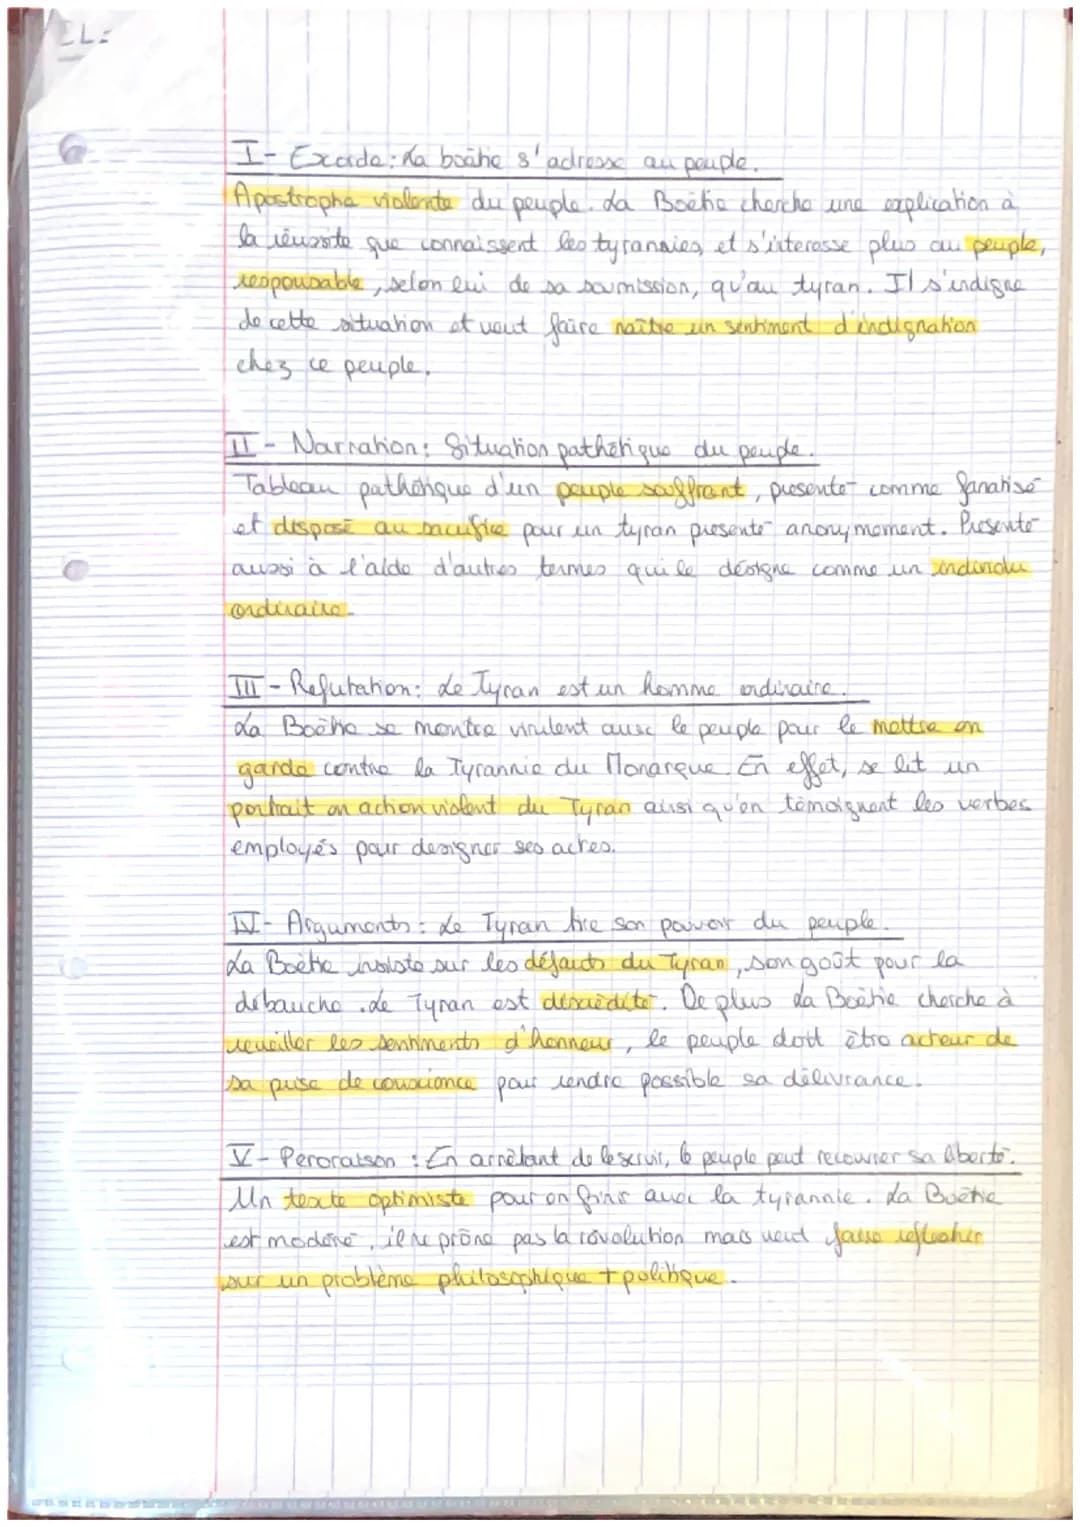 EL:
I - Exorde : La boétie s'adresse au peuple.
Apostrophe violente du peuple. La Boétie cherche une explication à
la réussite que connaissent les tyrannies, et s'interesse plus au peuple,
responsable, selon lui de sa soumission, qu'au tyran. Il s'indigne
de cette situation et veut faire naître un sentiment d'indignation
chez ce peuple.
II - Narration : Situation pathétique du peuple.
Tableau pathétique d'un peuple souffrant, présenté comme fanatisé
et disposé au sacrifice pour un tyran présenté anonymement. Présenté
aussi à l'aide d'autres termes qui le désigne comme un individu
ordinaire.
III - Refutation : Le Tyran est un homme ordinaire.
La Boétie se montre virulent avec le peuple pour le mettre en
garde contre la Tyrannie du Monarque. En effet, se lit un
portrait en action violent du Tyran ainsi qu'en témoignent les verbes
employés pour designer ses actes.
IV - Arguments : Le Tyran tire son pouvoir du peuple.
La Boétie insiste sur les défauts du Tyran, son goût pour la
débauche. Le Tyran est discrédité. De plus La Boétie cherche à
réveiller les sentiments d'honneur, le peuple doit être acteur de
sa prise de conscience pour rendre possible sa délivrance.
V - Peroraison : En arrêtant de le servir, le peuple peut recouvrer sa liberté.
Un texte optimiste pour en finir avec la tyrannie. La Boétie
est modéré, il ne prône pas la révolution mais veut faire réfléchir
sur un problème philosophique + politique.